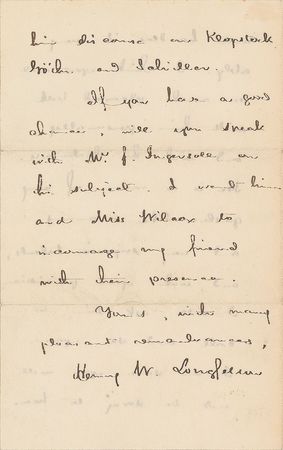 his discourse on Klopstock
Göthe and Schiller.
If you has a good
chance, will you speak
with Mr. J. Ingersoll on
his subject. I want him
and Miss Wilcox to
encourage my friend
with their presence.
Yours, with many
pleasant remembrances,
Henry W. Longfellow